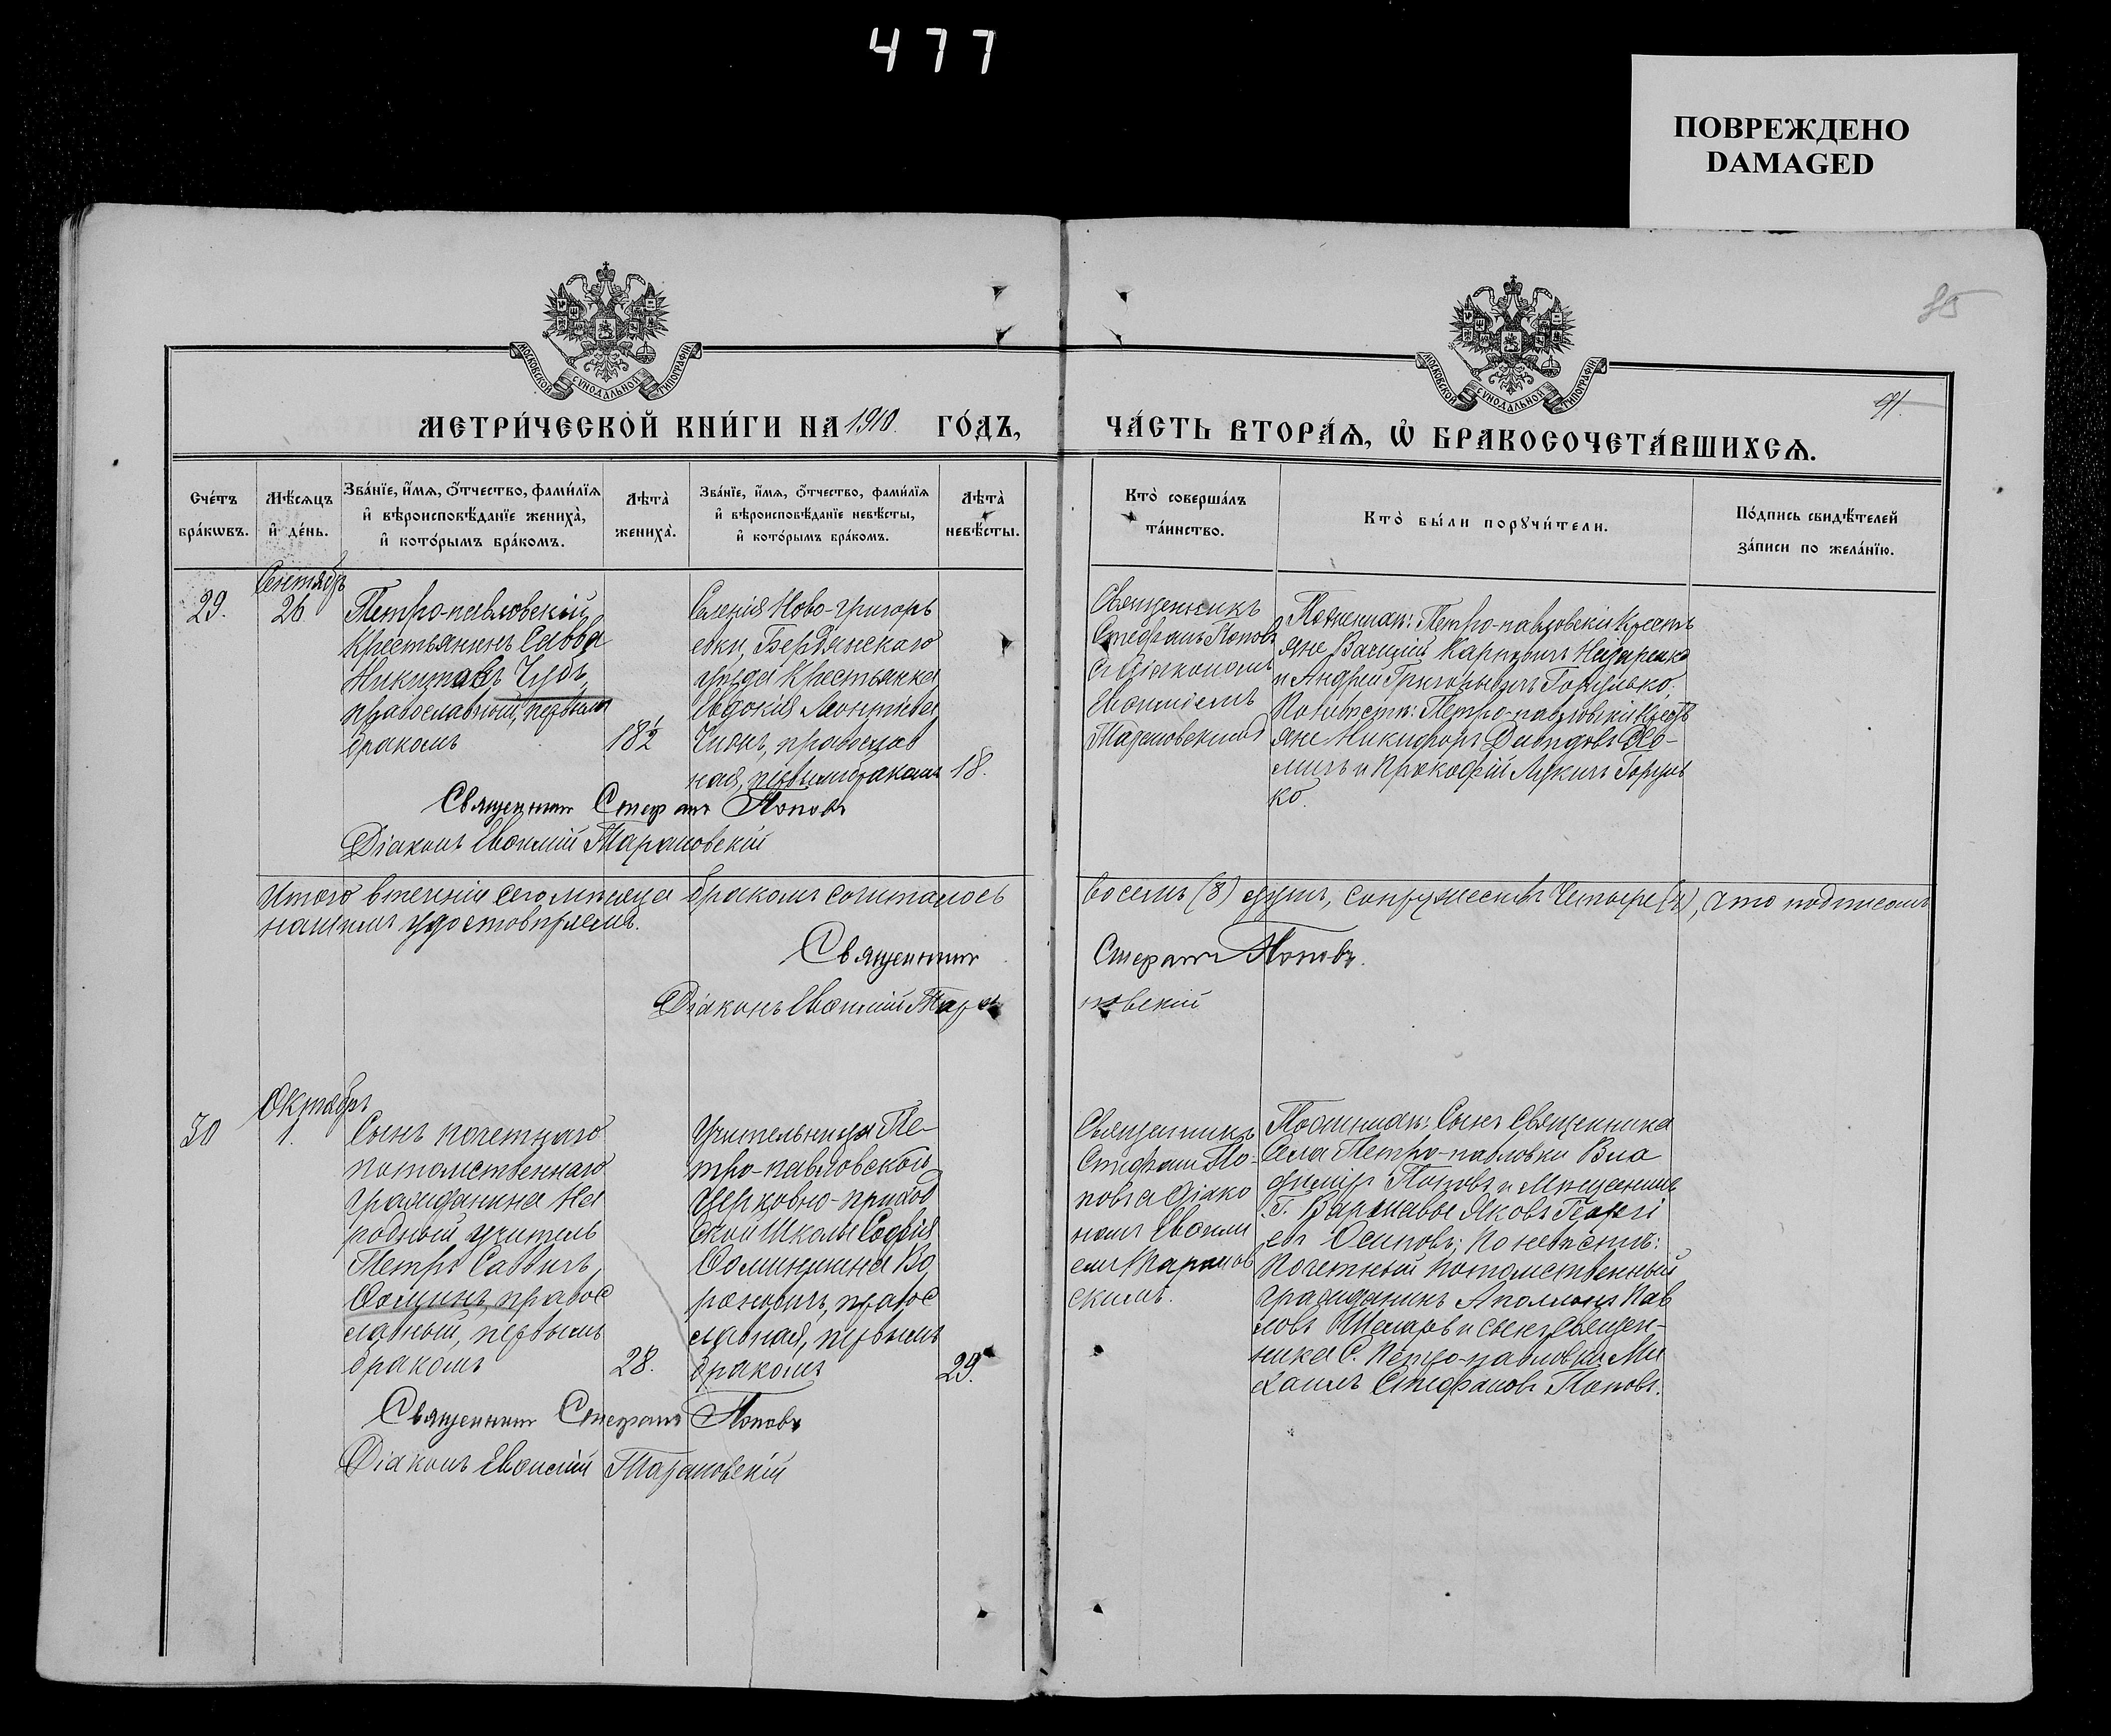 477
ПОВРЕЖДЕНО
DAMAGED
85
91.
МОСКОВСКОЙ СѴНОДАЛЬНОЙ ТИПОГРАФІИ
МОСКОВСКОЙ СѴНОДАЛЬНОЙ ТИПОГРАФІИ
МЕТРИ́ЧЕСКОЙ КНИ́ГИ НА 1910. ГО́ДЪ,
ЧА́СТЬ ВТОРА́Ѧ, Ѽ БРАКОСОЧЕТА́ВШИХСѦ.
Сче́тъ бра́кѡвъ.
Мѣ́сяцъ и҆ де́нь.
Зва́нїе, и҆́мѧ, ѻ҆́тчество, фами́лїѧ и҆ вѣроисповѣ́данїе жениха̀, и҆ кото́рымъ бра́комъ.
Лѣта̀ жениха̀.
Зва́нїе, и҆́мѧ, ѻ҆́тчество, фами́лїѧ и҆ вѣроисповѣ́данїе невѣ́сты, и҆ кото́рымъ бра́комъ.
Лѣта̀ невѣ́сты.
Кто̀ соверша́лъ та́инство.
Кто̀ бы́ли порꙋчи́тели.
По́дпись свидѣ́телей за́писи по жела́нїю.
29.
Сентябрь
26
Петро-павловскій
Крестьянинъ Савва
Никитовъ Чубъ,
православный, первымъ
бракомъ
18½
Селенія Ново-Григорь
евки, Бердянскаго
уѣзда Крестьянка
Евдокія Леонтіева
православ
ная, первымъ бракомъ
18.
Священникъ
Стефанъ Поповъ
съ діакономъ
Евѳиміемъ
Тарановскимъ
По женихѣ: Петро-павловскіе Кресть
яне Василій Карповичъ Назаренко
и Андрей Григорьевичъ Горулько;
По невѣстѣ: Петро-павловскіе Кресть
яне Никифоръ Давидовъ
и Прокофій Лукичъ Горуль
ко.
Священникъ Стефанъ Поповъ
Діаконъ Евѳимій Тарановскій
Итого въ теченіи сего мѣсяца бракомъ сочеталось восемь (8) душъ, супружествъ четыре (4), что подписомъ
нашимъ удостовѣряемъ.
Священникъ Стефанъ Поповъ.
Діаконъ Евѳимій Тарановскій
30
Октябрь
1.
Сынъ почетнаго
потомственнаго
гражданина На
родный учитель
Петръ Саввичъ
Ѳоминъ, правос
лавный, первымъ
бракомъ
28.
Учительница Пе-
тро-павловской
Церковно-приход
ской Школы Софія
Ѳоминична Во
роновичъ, правос
лавная, первымъ
бракомъ
29.
Священникъ
Стефанъ По-
повъ съ діако
номъ Евѳимі
емъ Таранов
скимъ.
По женихѣ: Сынъ Священника
Села Петро-павловки Вла
диміръ Поповъ и Мѣщанинъ
Г. Варшавы Яковъ Георгі
евъ Осиповъ; По невѣстѣ:
Почетный потомственный
гражданинъ Аполлонъ Пав
ловъ и сынъ священ-
ника С. Петро-павловки Ми
хаилъ Стефановъ Поповъ.
Священникъ Стефанъ Поповъ
Діаконъ Евѳимій Тарановскій